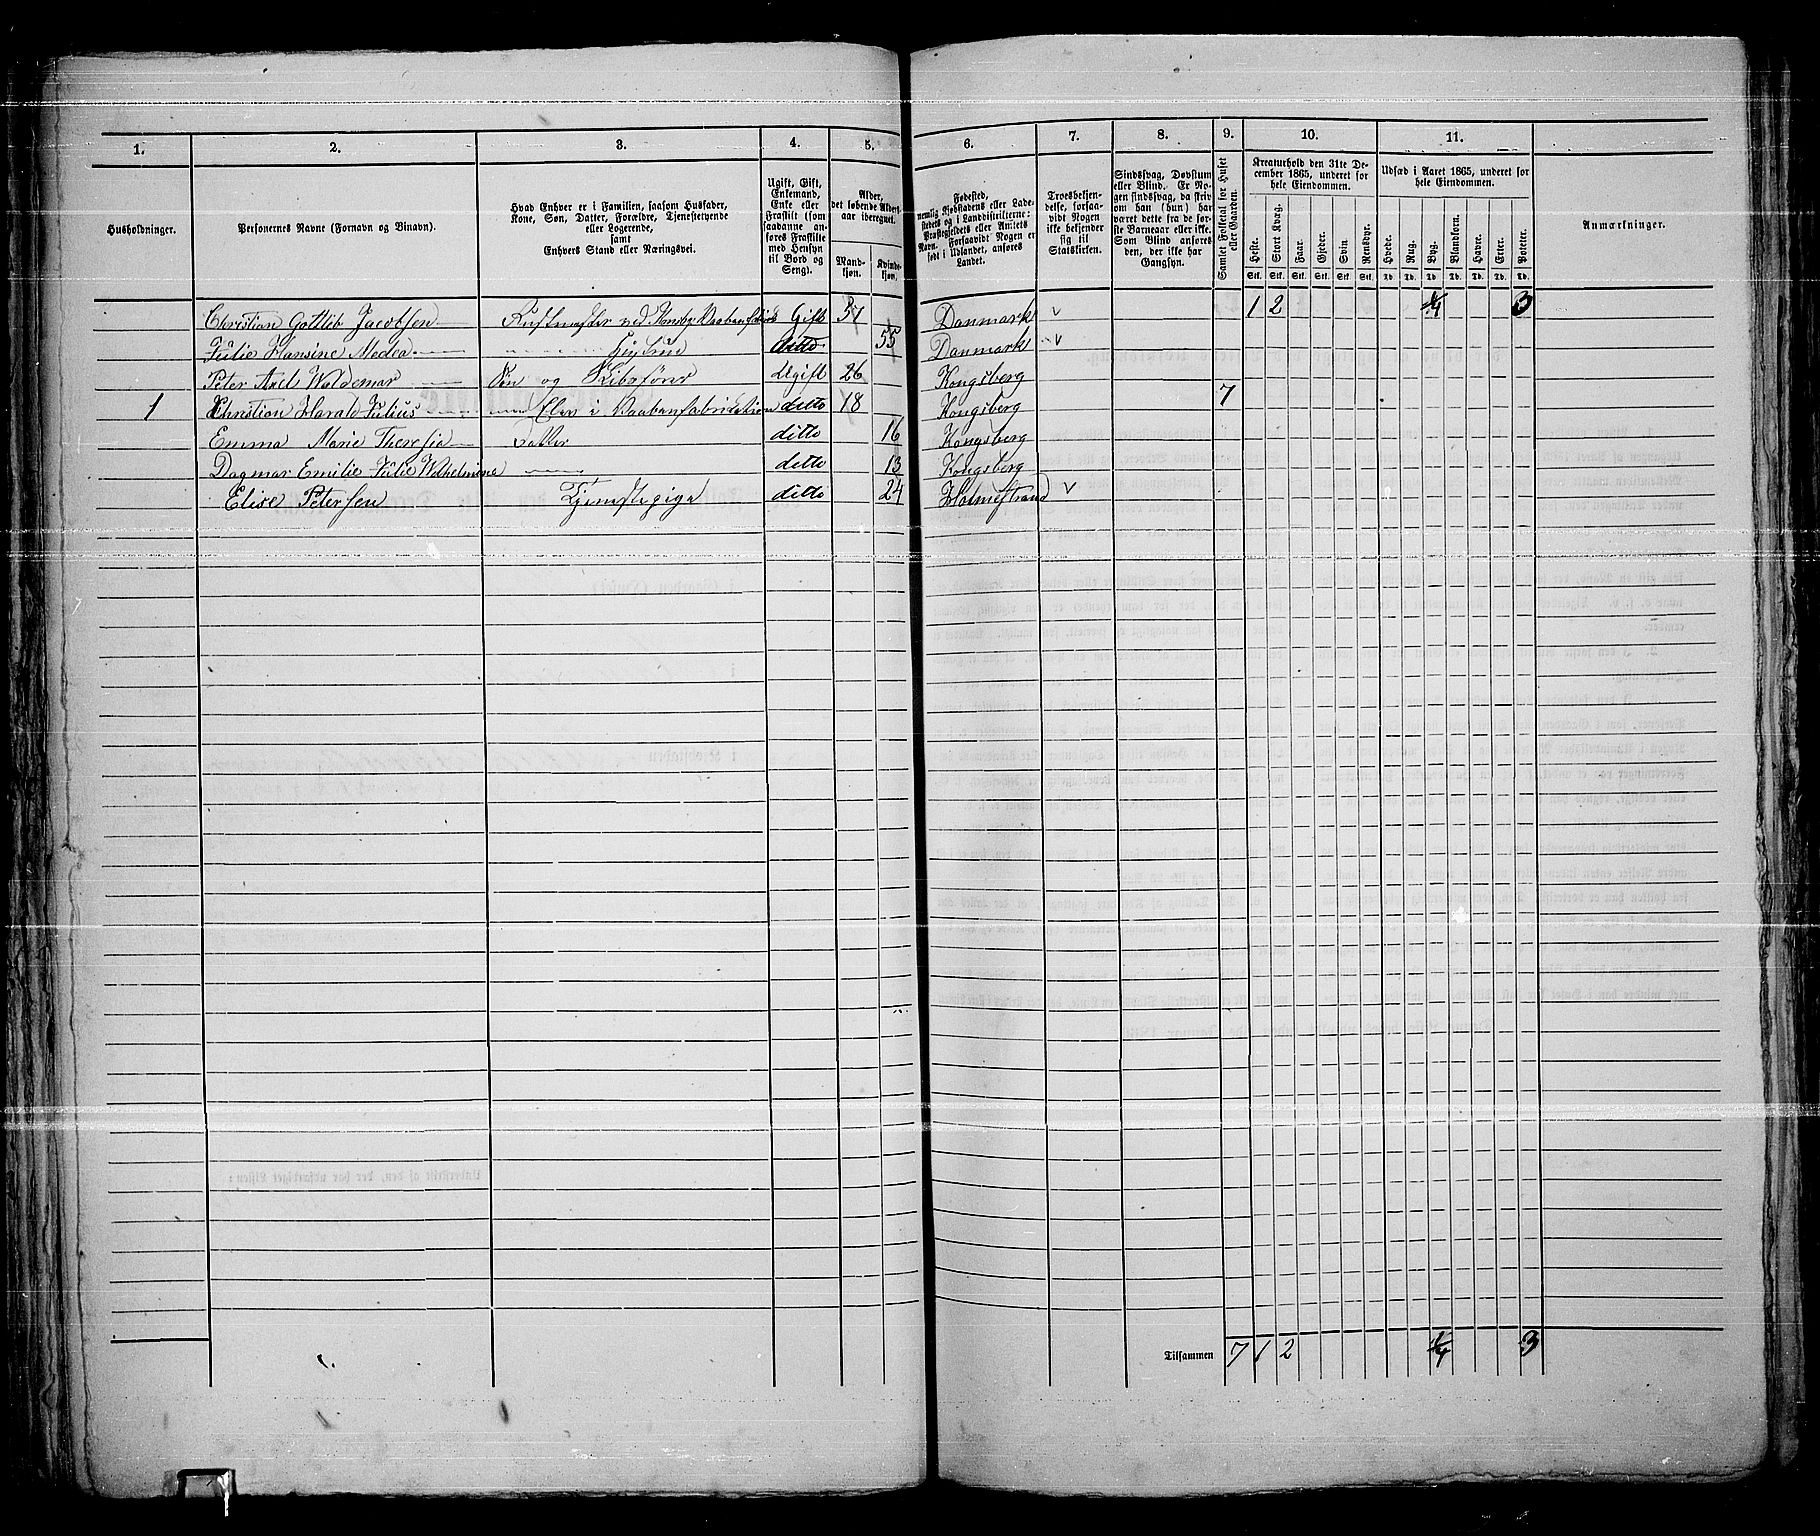 1. 2. 3. 4. 5. 6. 7. 8. 9. 10. 11.
Husholdninger.
Personernes Navne (Fornavn og Binavn).
Hvad Enhver er i Familien, saasom Husfader, Kone, Søn, Datter, Forældre, Tjenestetyende eller Logerende, samt Enhvers Stand eller Næringsvei.
Ugift, Gift, Enkemand, Enke eller Fraskilt (som saadanne anføres Fraskilte med Hensyn til Bord og Seng).
Alder, det løbende Aldersaar iberegnet.
Mandkjøn. Kvindekjøn.
Fødested, nemlig Kjøbstadens eller Ladestedets og i Landdistrikterne: Præstegjeldets eller Amtets Navn. Forsaavidt Nogen er født i Udlandet, anføres Landet.
Troesbekjendelse, forsaavidt Nogen ikke bekjender sig til Statskirken.
Sindssvag, Døvstum eller Blind. Er Nogen sindssvag, da skrives om han (hun) har været dette fra de første Barneaar eller ikke. Som Blind anføres den, der ikke har Gangsyn.
Samlet Folketal for Huset eller Gaarden.
Kreaturhold den 31te December 1865, underet for hele Eiendommen.
Heste. Stort Kvæg. Faar. Gjeder. Svin. Rensdyr.
Stk. Stk. Stk. Stk. Stk. Stk.
Udsæd i Aaret 1865, underet for hele Eiendommen.
Hvede. Rug. Byg. Blandkorn. Havre. Erter. Poteter.
Td. Td. Td. Td. Td. Td. Td.
Anmærkninger.
Christian Gottlib Jacobsen Rustmester ved Vaabenfabriken Gift 57 Danmark 1 2 1/4 3
Julie Hansine Medea Hustrue ditto 55 Danmark
Peter Axel Waldemar Søn og Ugift 26 Kongsberg
1 Christian Harald Julius Elev i Vaabenfabrikation ditto 18 Kongsberg 7
Emma Marie Theresia Datter ditto 16 Kongsberg
Dagmar Emilie Julie Wilhelmine ditto 13 Kongsberg
Elise Petersen Tjenestepige ditto 24 Holmestrand
Tilsammen 7 1 2 1/4 3